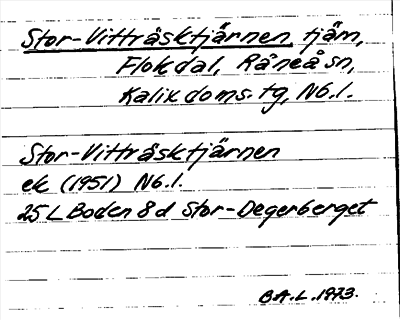 Stor-Vitträsktjärnen, tjärn,
Flokdal, Råneå sn,
Kalix doms. tg, Nb.l.
Stor-Vitträsktjärnen
ek (1951) Nb.l.
25 L Boden 8 d Stor-Degerberget
B.A.L. 1973.